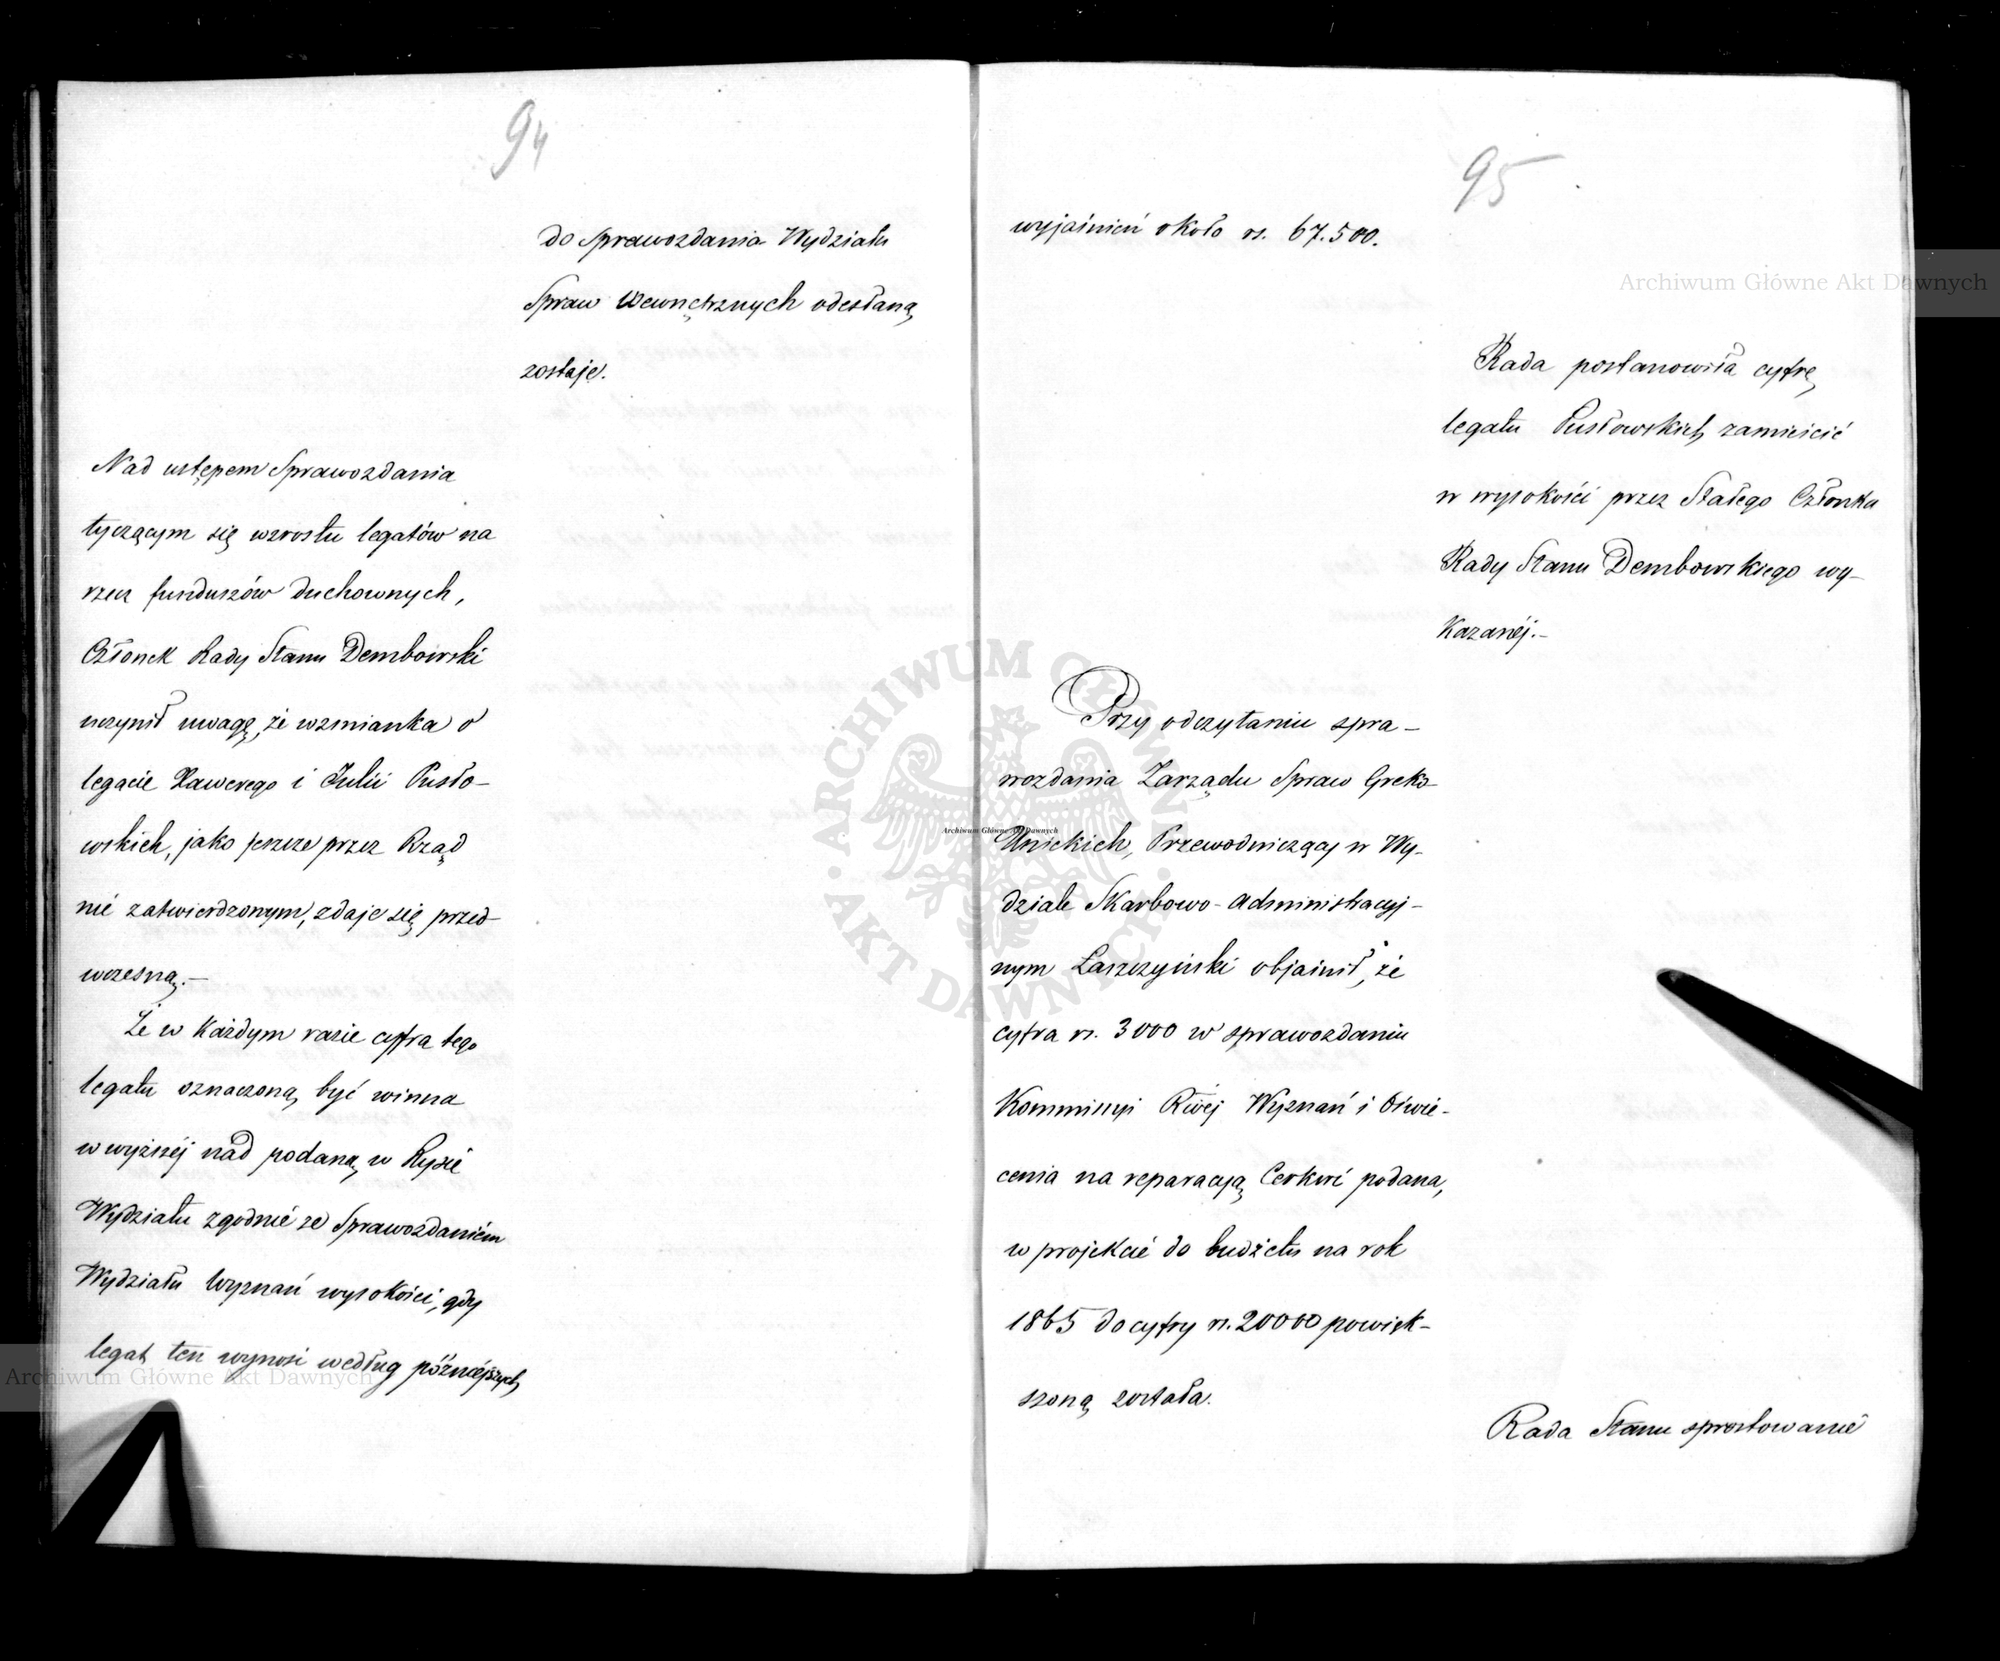 94
do Sprawozdania Wydziału
Spraw Wewnętrznych odesłaną
zostaje.
Nad ustępem Sprawozdania
tyczącym się wzrostu legatów na
rzecz funduszów duchownych,
Członek Rady Stanu Dembowski
uczynił uwagę, że wzmianka o
legacie Xawerego i Julii Pusło-
wskich, jako jeszcze przez Rząd
nie zatwierdzonym, zdaje się przed-
wczesną.—
Że w każdym razie cyfra tego
legatu oznaczoną być winna
w wyższéj nad podaną w Rysie
Wydziału zgodnie ze Sprawozdaniem
Wydziału Wyznań wysokości, gdy
legat ten wynosi według późniejszych
95
wyjaśnień około rs. 67.500.
Rada postanowiła cyfrę
legatu Pusłowskich zamieścić
w wysokości przez Stałego Członka
Rady Stanu Dembowskiego wy-
kazanéj.—
Przy odczytaniu spra-
wozdania Zarządu Spraw Greko-
Unickich, Przewodniczący w Wy-
dziale Skarbowo-Administracyj-
nym Łaszczyński objaśnił, że
cyfra rs. 3000 w sprawozdaniu
Kommissyi Rwéj Wyznań i Oświe-
cenia na reparacyą Cerkwi podana,
w projekcie do budżetu na rok
1865 do cyfry rs. 20000 powięk-
szoną została.
Rada Stanu sprostowanie
Archiwum Główne Akt Dawnych
Archiwum Główne Akt Dawnych
Archiwum Główne Akt Dawnych
ARCHIWUM GŁÓWNE AKT DAWNYCH